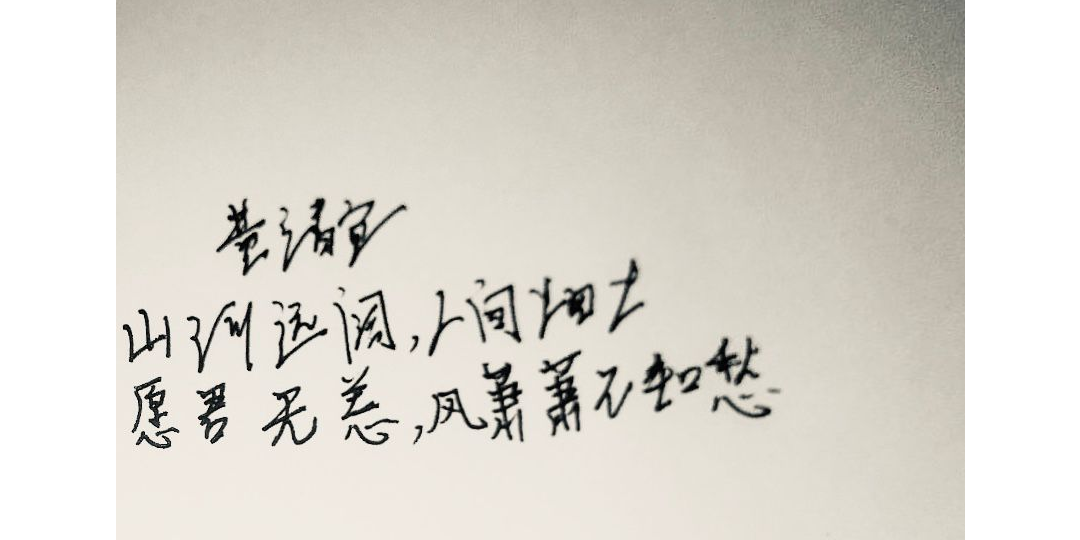 清宜
山河远阔,人间烟土
愿君无恙,风萧萧不知愁